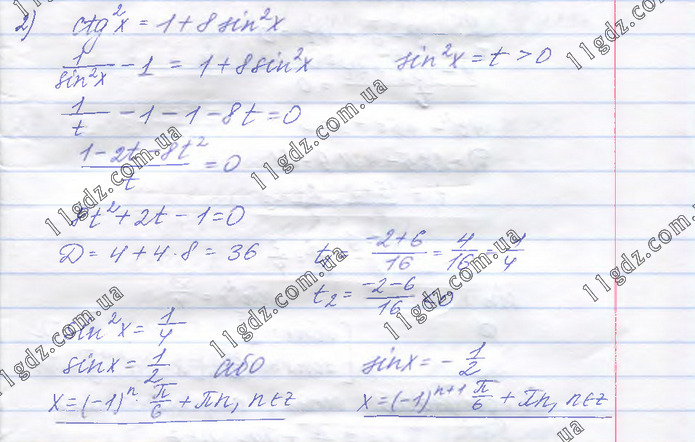 2) ctg²x = 1 + 8 sin²x
1/sin²x − 1 = 1 + 8 sin²x    sin²x = t > 0
1/t − 1 − 1 − 8t = 0
(1 − 2t − 8t²)/t = 0
8t² + 2t − 1 = 0
D = 4 + 4·8 = 36    t₁ = (−2+6)/16 = 4/16 = 1/4
t₂ = (−2−6)/16 < 0
sin²x = 1/4
sin x = 1/2    або    sin x = − 1/2
x = (−1)ⁿ · π/6 + πn, n∈z    x = (−1)ⁿ⁺¹ π/6 + πn, n∈z
11gdz.com.ua
11gdz.com.ua
11gdz.com.ua
11gdz.com.ua
11gdz.com.ua
11gdz.com.ua
11gdz.com.ua